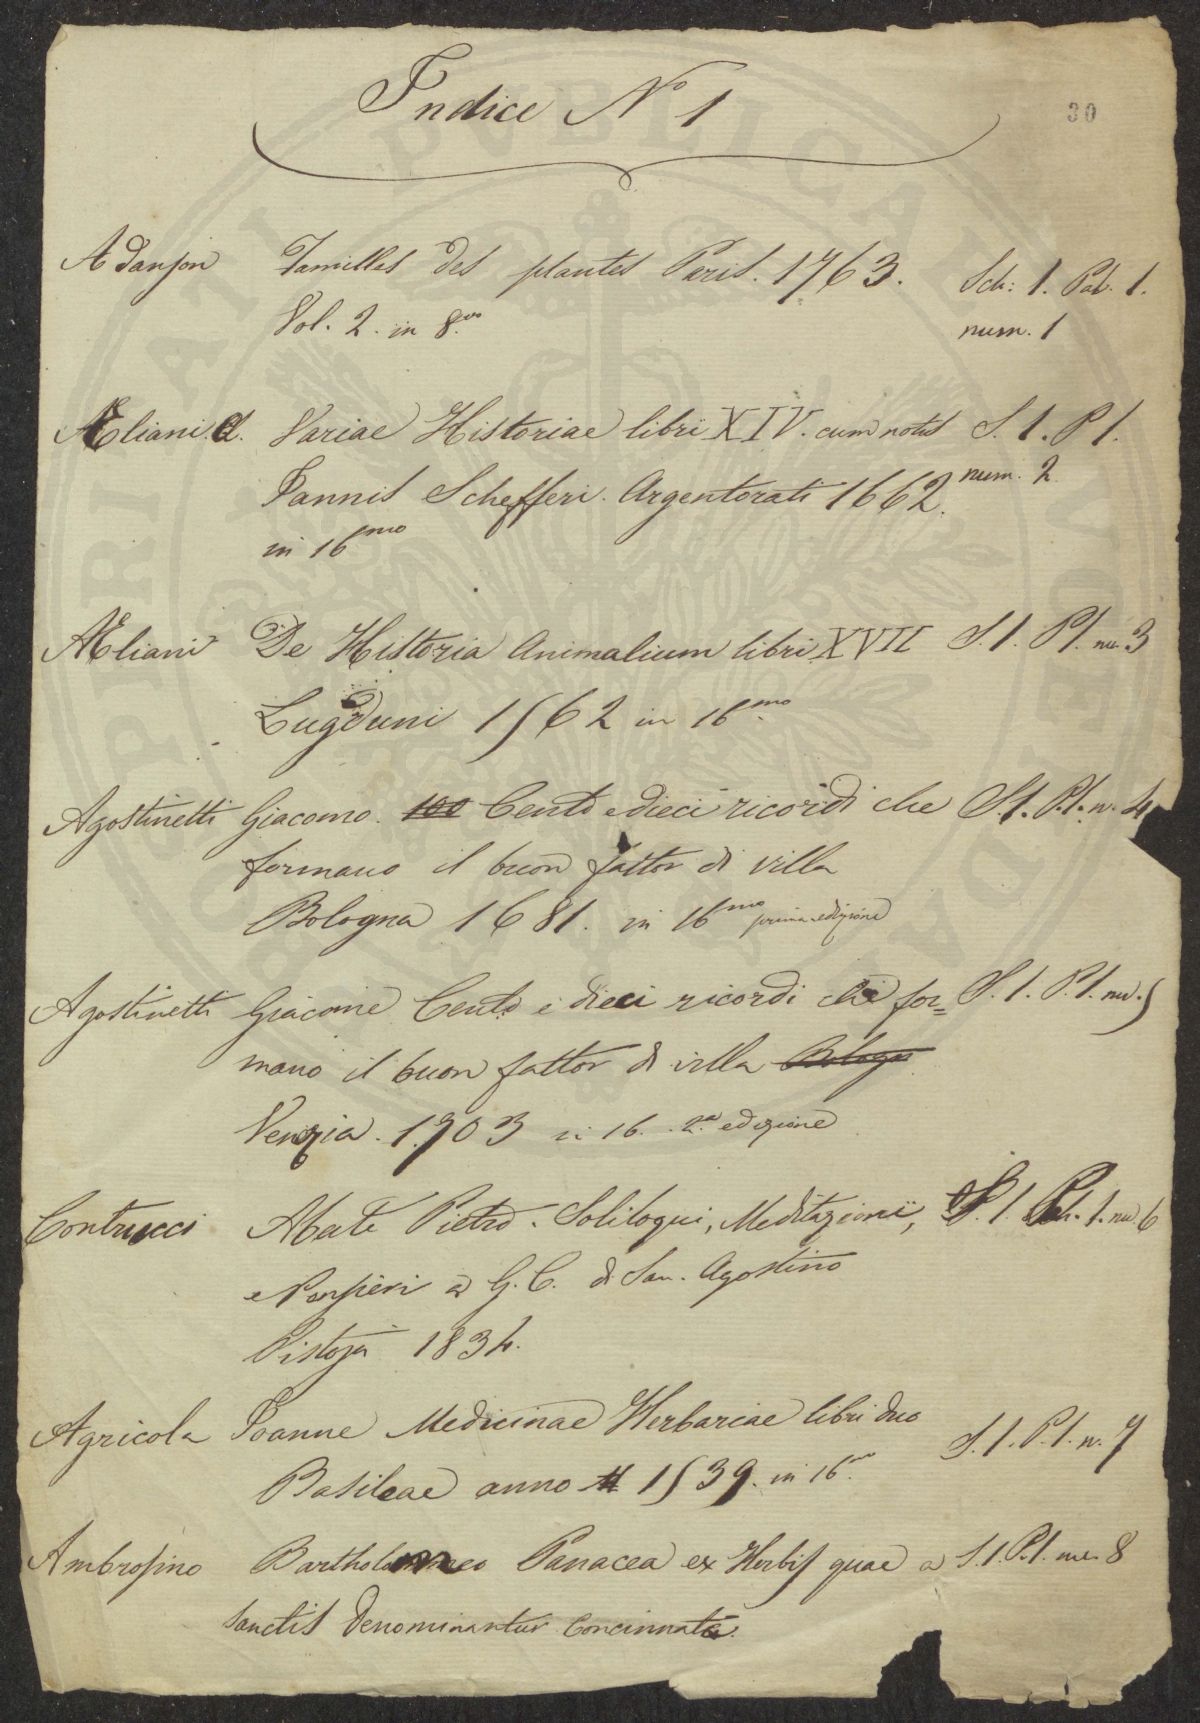 Indice Nº 1
30
Adanson Familles des plantes Paris. 1763. Sch: 1. Pal. 1.
Vol. 2. in 8.vo num. 1
Æliani. Cl. Variae Historiae libri XIV. cum notis S. 1. P 1.
Joannis Schefferi. Argentorati 1662. num. 2
in 16mo
Æliani De Historia Animalium libri XVII S. 1. P 1. nu. 3
Lugduni 1562 in 16mo
Agostinetti Giacomo. 100 Cento e dieci ricordi che S. 1. P. 1. n. 4
formano il buon fattor di villa
Bologna 1681. in 16mo prima edizione
Agostinetti Giacome Cento e dieci ricordi che for= S. 1. P. 1. nu. 5
mano il buon fattor di villa Bologn
Venezia. 1703 in 16. 2.a edizione
Contrucci Abate Pietro. Soliloqui, Meditazioni, S. 1. P. 1. nu. 6
e Pensieri a G. C. di San. Agostino
Pistoja 1834.
Agricola Joanne Medicinae Herbariae libri duo S. 1. P. 1. n. 7
Basileae anno 1539. in 16.mo
Ambrosino Bartholommeo Panacea ex Herbis quae a S. 1. P. 1. nu. 8
Sanctis denominantur Concinnata.